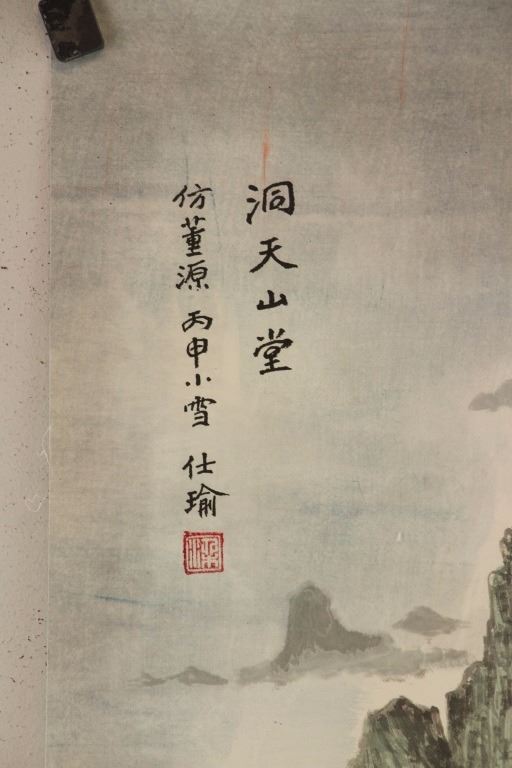 洞天山堂
仿董源 丙申小雪 仕瑜